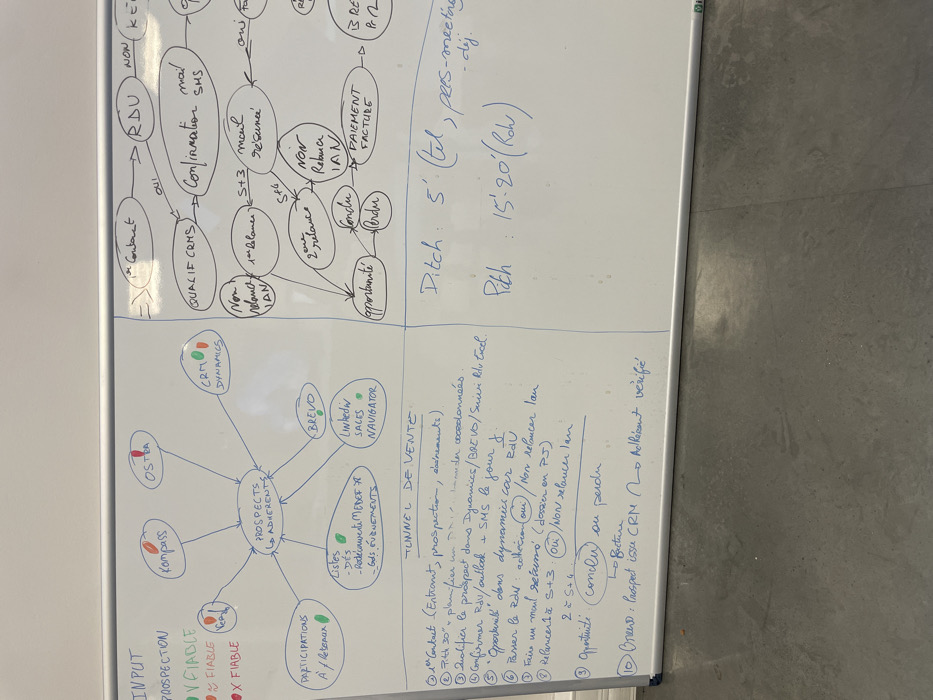 INPUT
PROSPECTION
V FIABLE
≈ FIABLE
X FIABLE
Compass
OSTRA
CRM
DYNAMICS
BREVO
LinkedIn
SALES
NAVIGATOR
Listes
- DES
- Recensement MEDEF
- Gds ÉVÉNEMENTS
PARTICIPATIONS
À / Réseaux
PROSPECTS
↳ ADHERENTS
=> 1er Contact
RDU
NON
OUI
QUALIF CRMS
Confirmation mail
SMS
oui
mail
résumé
S+3
1 relance
Non
relance
1AN
S+4
2ème
relance
NON
Relance
1AN
opportunité
Conclu
Perdu
PAIEMENT
FACTURE
TUNNEL DE VENTE
① 1er Contact (Entrant, prospection, événements)
② Pitch 30" + planifier un coordonnées
③ Qualifier le prospect dans Dynamics/BREVO/Suivi Rdv Excel
④ Confirmer RDV/outlook + SMS le jour J
⑤ "Opportunité" dans dynamics car RDV
⑥ Passer le RDV: adhésion oui / Non relancer 1an
⑦ Faire un mail résumé (dossier en PJ)
⑧ Relancer 1 à S+3: Oui / Non relancer 1an
2 à S+4
⑨ Opportunité conclu ou perdu
↳ Facture
⑩ Brevo: Prospect issu CRM → Adhérent vérifié
Ditch : 5' (tel, pros-meeting
- déj.
Pitch : 15'-20' (Rdv)